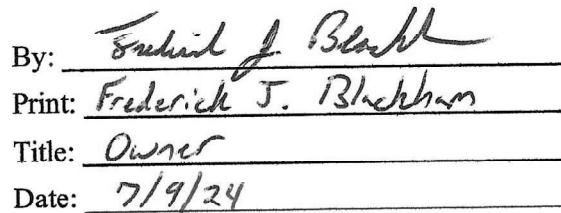 By: Frederick J. Blackham
Print: Frederick J. Blackham
Title: Owner
Date: 7/9/24